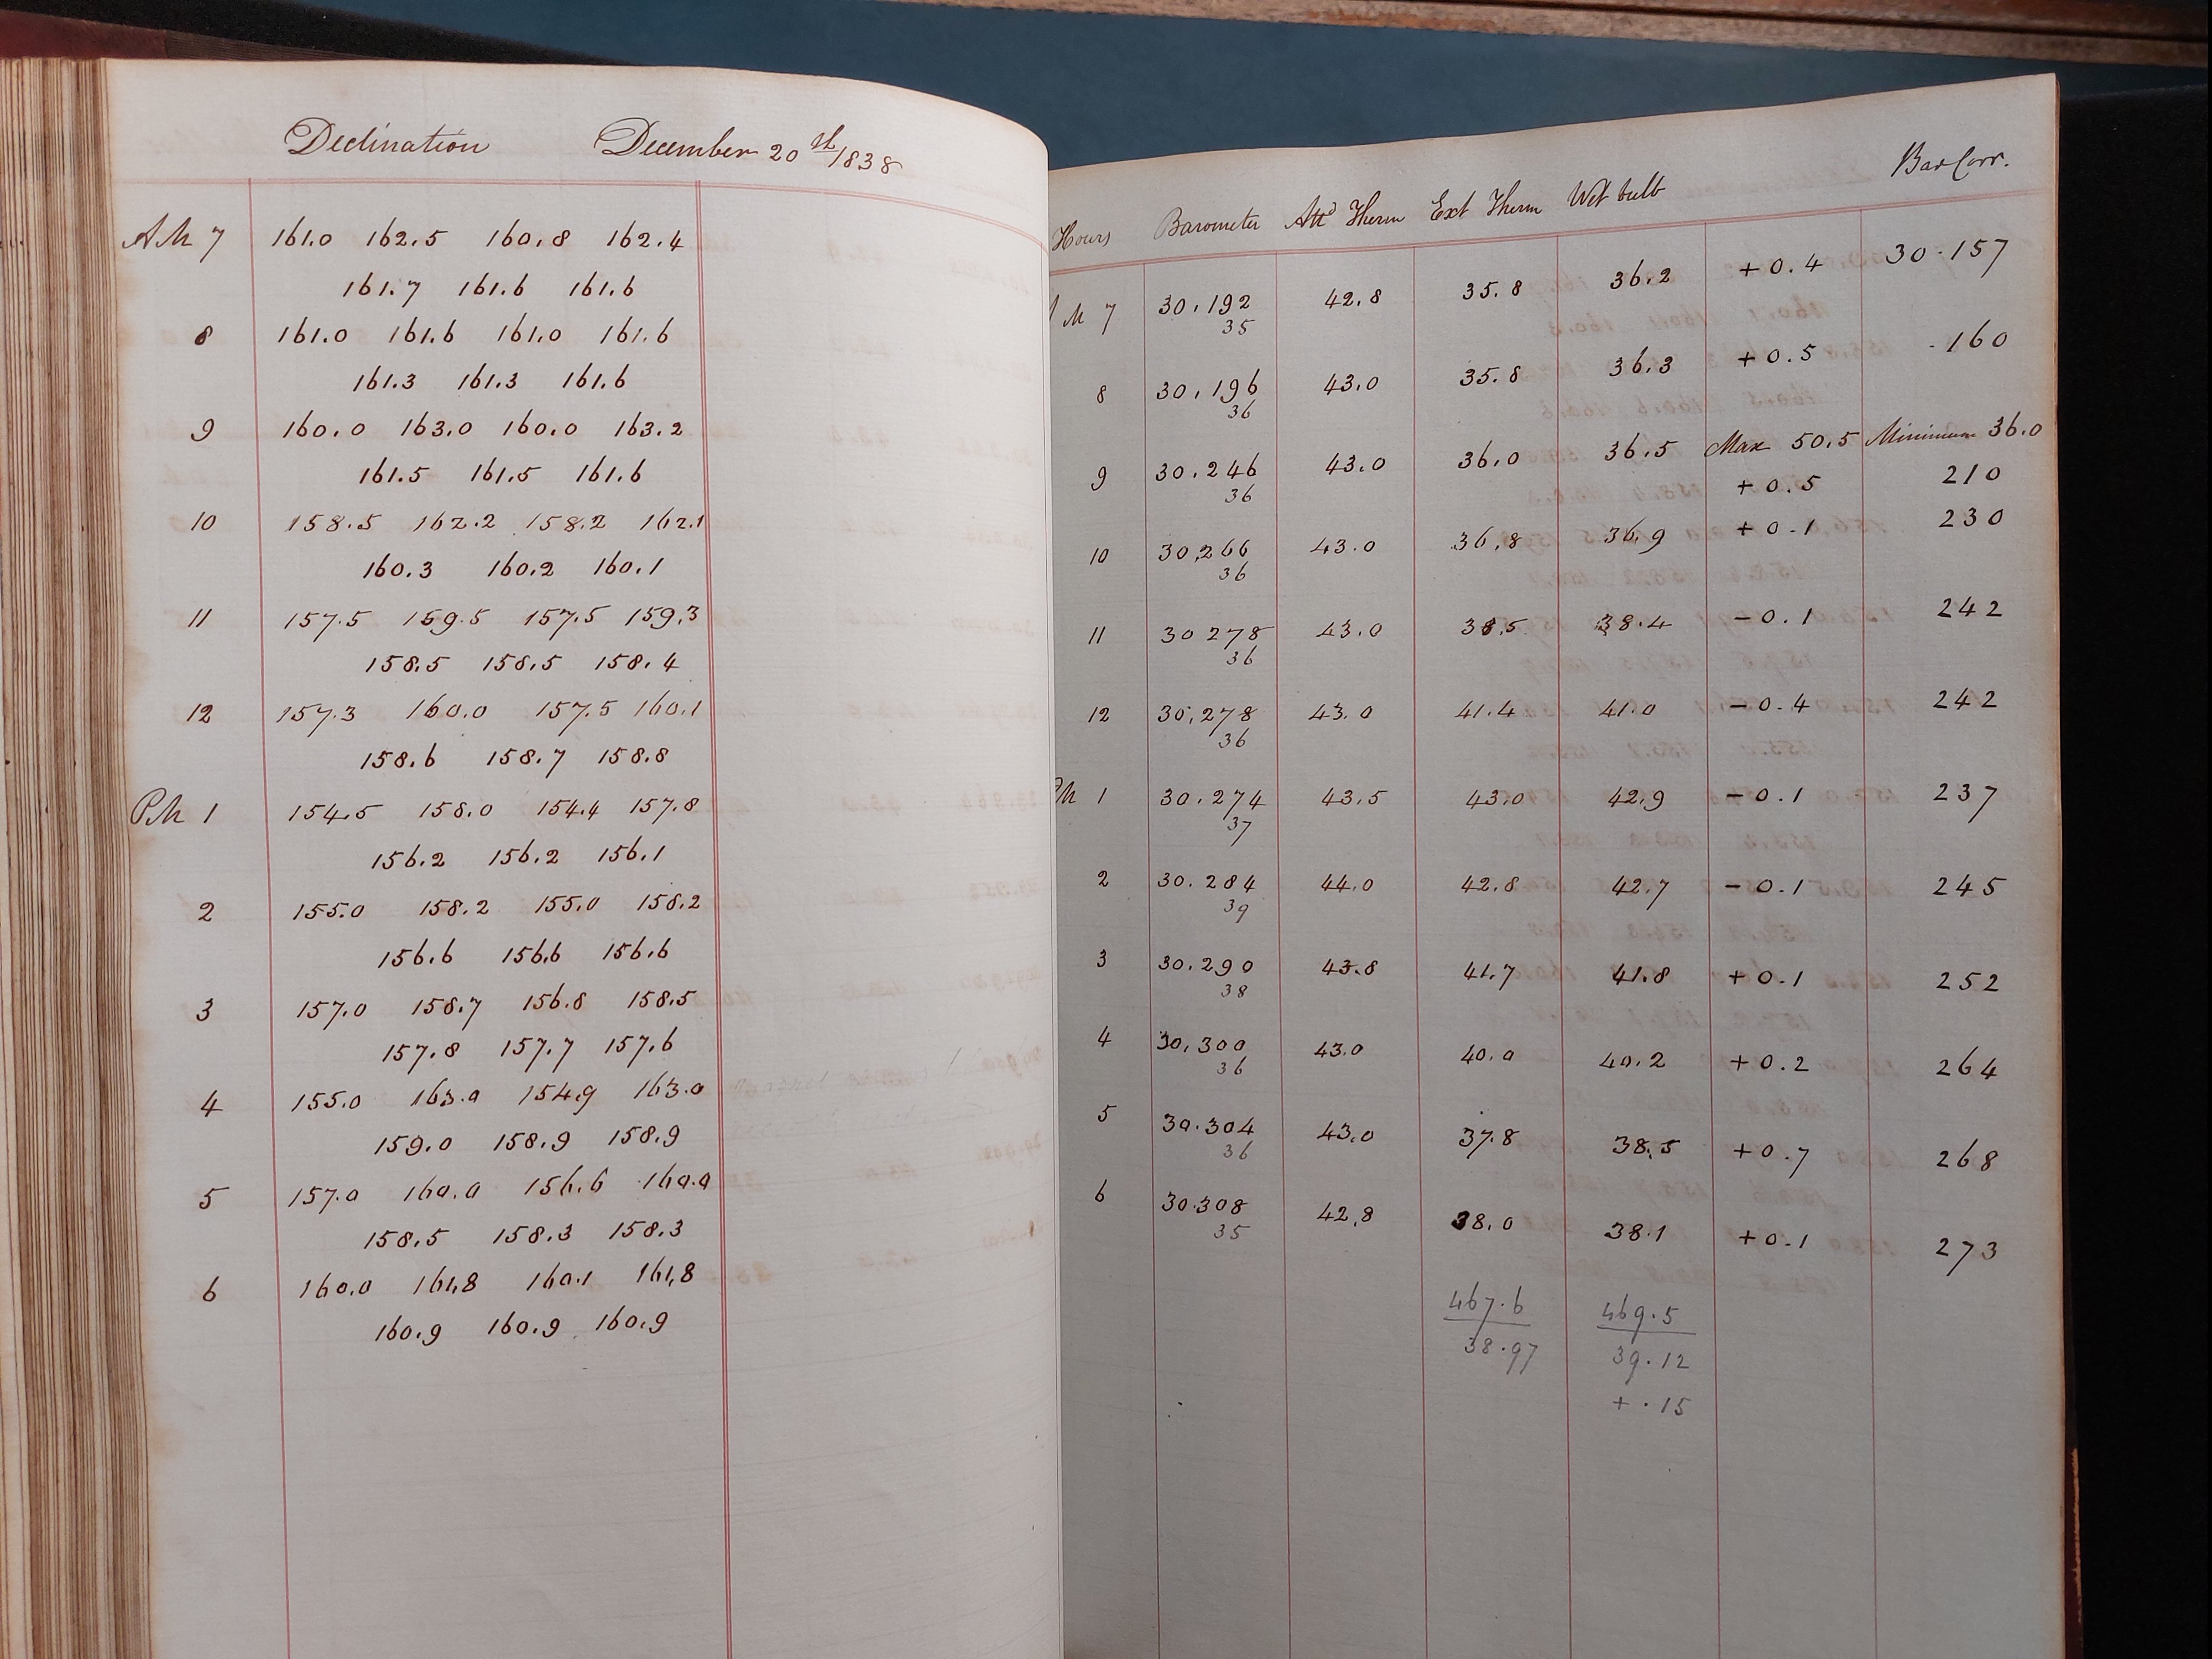 Declination December 20th/1838
AM 7 161.0 162.5 160.8 162.4
161.7 161.6 161.6
8 161.0 161.6 161.0 161.6
161.3 161.3 161.6
9 160.0 163.0 160.0 163.2
161.5 161.5 161.6
10 158.5 162.2 158.2 162.1
160.3 160.2 160.1
11 157.5 159.5 157.5 159.3
158.5 158.5 158.4
12 157.3 160.0 157.5 160.1
158.6 158.7 158.8
PM 1 154.5 158.0 154.4 157.8
156.2 156.2 156.1
2 155.0 158.2 155.0 158.2
156.6 156.6 156.6
3 157.0 158.7 156.8 158.5
157.8 157.7 157.6
4 155.0 163.0 154.9 163.0
159.0 158.9 158.9
5 157.0 160.0 156.6 160.0
158.5 158.3 158.3
6 160.0 161.8 160.1 161.8
160.9 160.9 160.9
Hours Barometer Attd Therm Ext Therm Wet bulb Bar Corr.
M 7 30.192 42.8 35.8 36.2 +0.4 30.157
35
8 30.196 43.0 35.8 36.3 +0.5 .160
36
9 30.246 43.0 36.0 36.5 Max 50.5 Minimum 36.0
36 +0.5 210
10 30.266 43.0 36.8 36.9 +0.1 230
36
11 30 278 43.0 38.5 38.4 -0.1 242
36
12 30.278 43.0 41.4 41.0 -0.4 242
36
PM 1 30.274 43.5 43.0 42.9 -0.1 237
37
2 30.284 44.0 42.8 42.7 -0.1 245
39
3 30.290 43.8 41.7 41.8 +0.1 252
38
4 30.300 43.0 40.0 40.2 +0.2 264
36
5 30.304 43.0 37.8 38.5 +0.7 268
36
6 30.308 42.8 38.0 38.1 +0.1 273
35
467.6 469.5
38.97 39.12
+.15